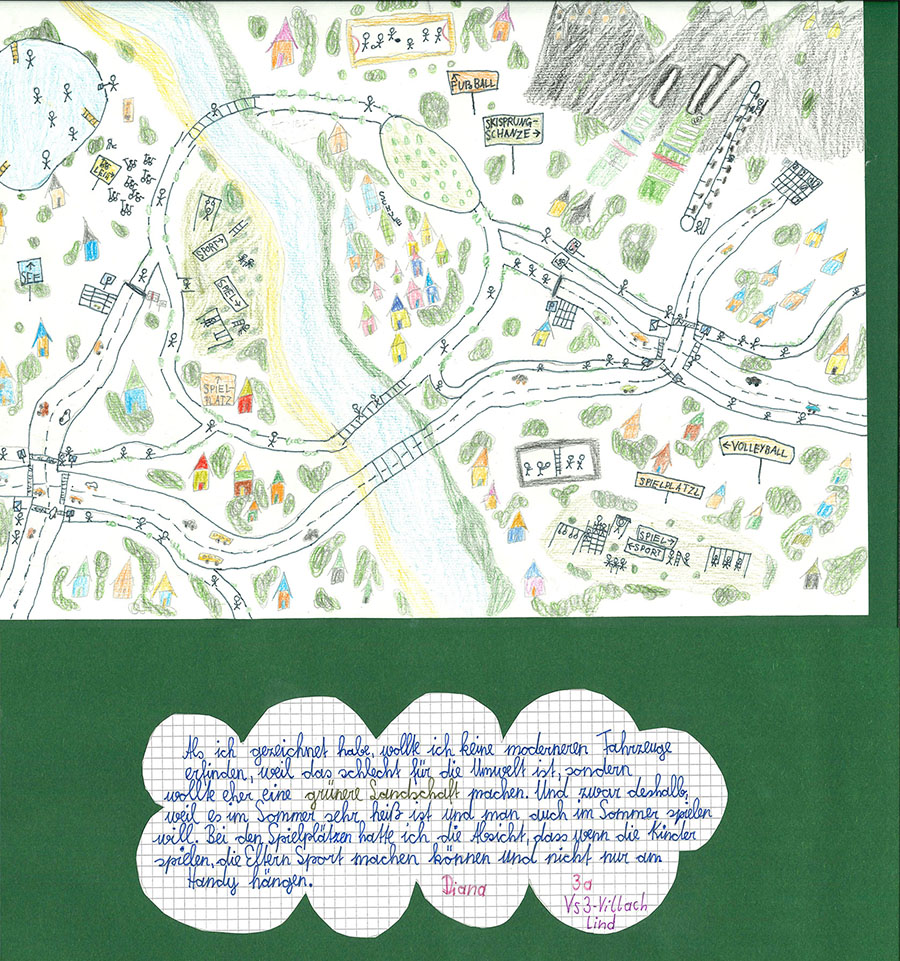 FUßBALL
SKISPRUNG-
SCHANZE
LEIH
SEE
P
SPORT
SPIEL
SPIEL-
PLATZ
P
VOLLEYBALL
SPIELPLATZL
SPIEL
SPORT
Als ich gezeichnet habe, wollte ich keine moderneren Fahrzeuge
erfinden, weil das schlecht für die Umwelt ist, sondern
wollte eher eine grünere Landschaft machen. Und zwar deshalb,
weil es im Sommer sehr heiß ist und man auch im Sommer spielen
will. Bei den Spielplätzen hatte ich die Absicht, dass wenn die Kinder
spielen, die Eltern Sport machen können und nicht nur am
Handy hängen.
Diana
3a
Vs3-Villach
Lind